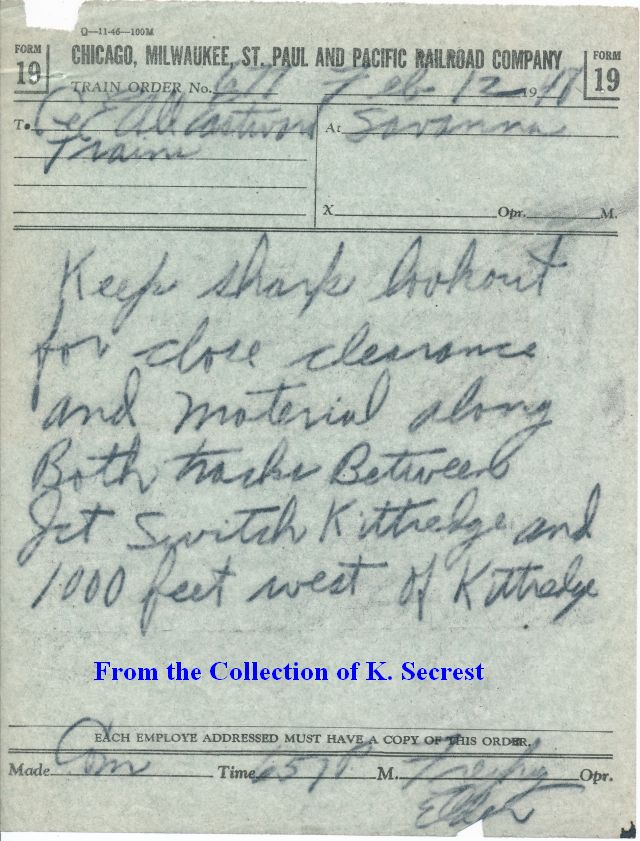 Q—11-46—100M
FORM 19 CHICAGO, MILWAUKEE, ST. PAUL AND PACIFIC RAILROAD COMPANY FORM 19
TRAIN ORDER No. 677 Feb 12 1948
To C&E All Eastward At Savanna
Trains
X Opr. M.
Keep sharp lookout
for close clearance
and material along
Both tracks Between
Jct Switch Kittredge and
1000 feet west of Kittredge
From the Collection of K. Secrest
EACH EMPLOYE ADDRESSED MUST HAVE A COPY OF THIS ORDER.
Made Com Time 657P M. Opr.